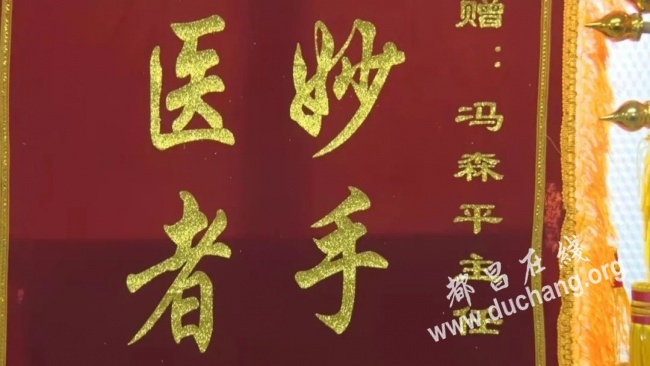 赠：冯森平主任
妙手
医者
都昌在线
www.duchang.org